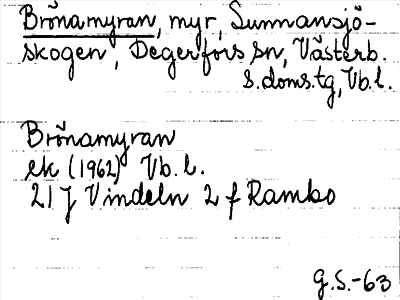 Brånamyran, myr, Sunnansjö-
skogen, Degerfors sn, Västerb.
s.doms.tg, Vb.l.
Brånamyran
ek (1962) Vb.l.
21 J Vindeln 2 f Rambo
G.S.-63